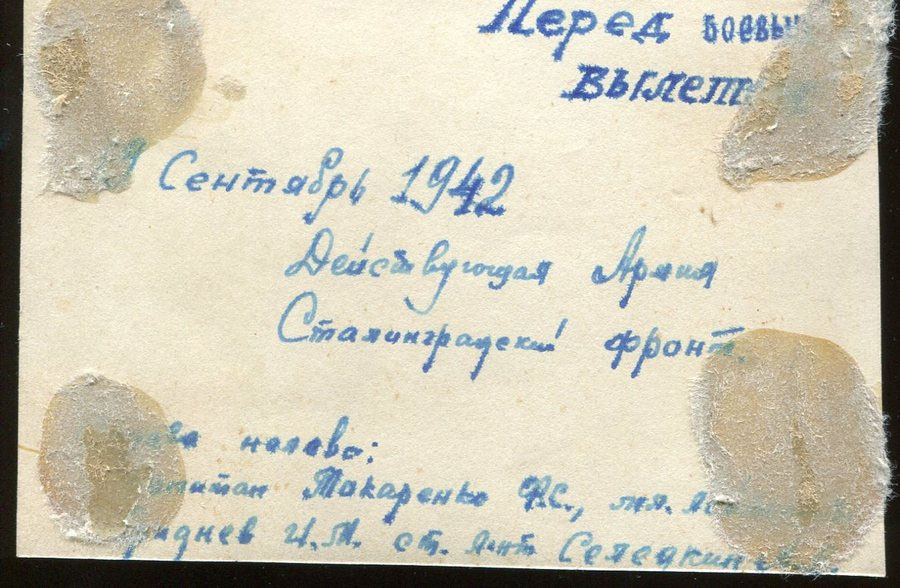 Перед боевы
вылет
Сентябрь 1942
Действующая Армия
Сталинградский фронт.
налево:
Макаренко Ф.С., мл.
И.М. ст. л-нт Селедкин